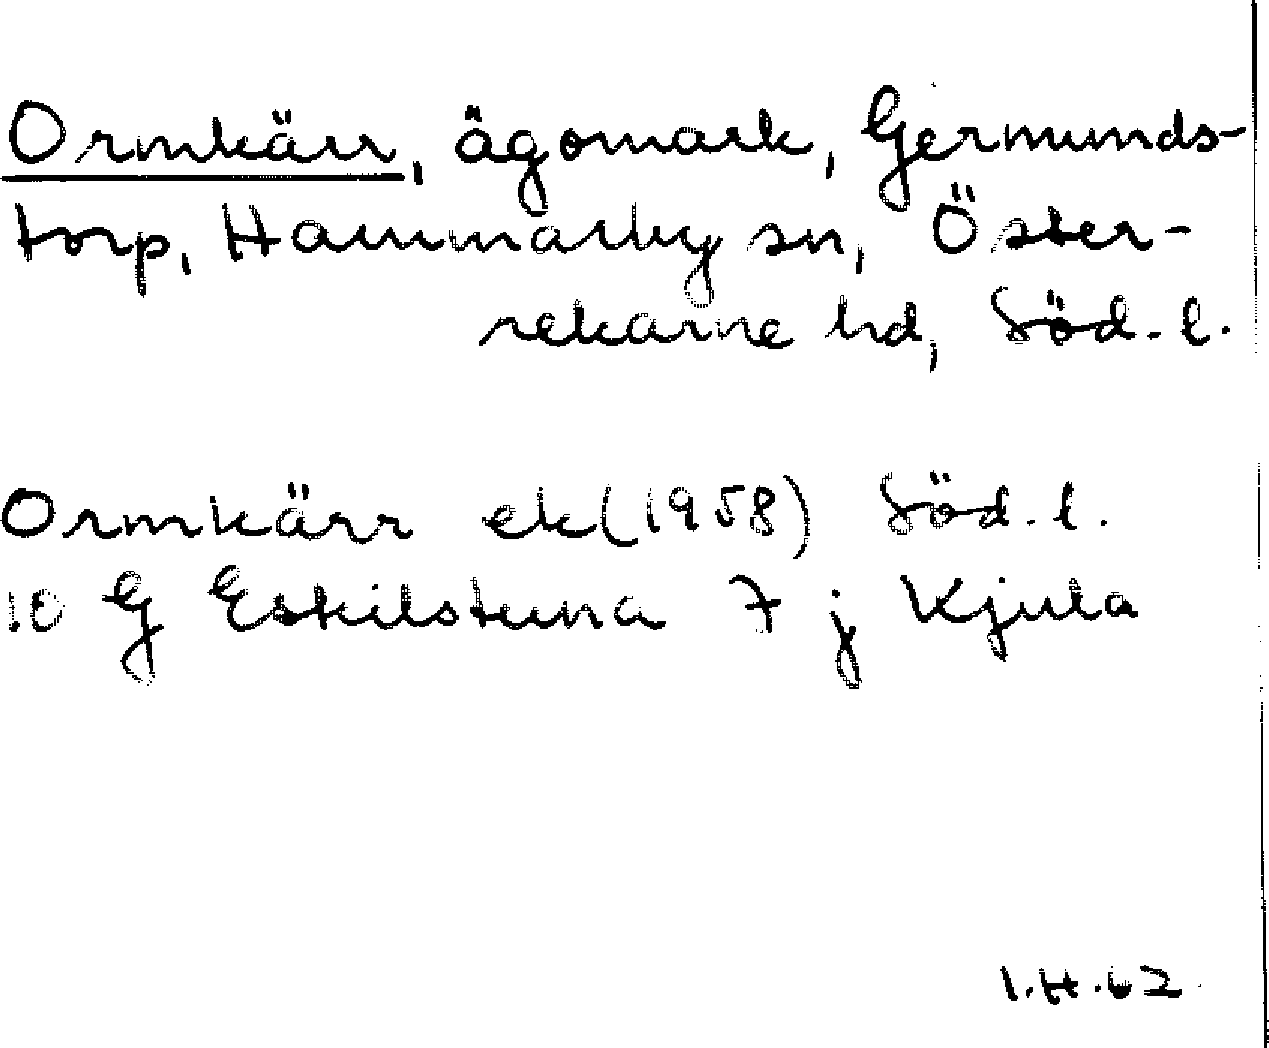 Ormkärr, ägomark, Germunds-
torp, Hammarby sn, Öster-
rekarne hd, Söd.l.
Ormkärr ek (1958) Söd.l.
10 G Eskilstuna 7 j Kjula
I.H.62.